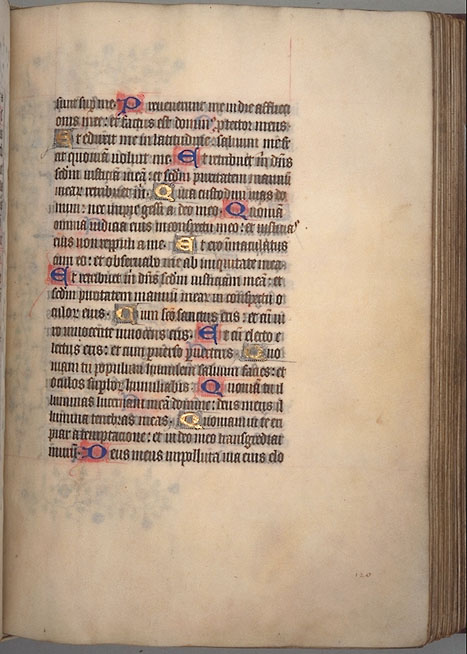 sunt sup̱ me. Preuenerunt me in die afflicti
onis mee: et factus est dominꝰ ꝓtector meus
Et eduxit me in latitudinē: saluum me fe
cit quoniam uoluit me. Et retribuet m̄ dn̄s
scḋm iusticiā meā: et scḋm puritatem manuū
meaꝝ retribuet m̄. Quia custodiui uias do
mini: nec impie gessi a deo meo. Quoniā
omnia iudicia eius in conspectu meo: et iusticias
eius non reppuli a me. Et ero immaculatus
cum eo: et obseruabo me ab iniquitate mea
Et retribuet m̄ dn̄s scḋm iusticiam meā: et
scḋm puritatem manuum meaꝝ in conspectu o
culoꝝ eius. Cum sc̄o sanctus eris: et cū ui
ro innocente innocens eris. Et cū electo e
lectus eris: et cum ꝑuerso ꝑuerteris. Quo
niam tu populum humilem saluum facies: et
oculos suꝑboꝝ humiliabis. Quoniā tu il
luminas lucernam meā domine: deus meus il
lumina tenebras meas. Quoniam in te eri
piar a temptacione: et in deo meo transgrediar
murū. Deus meus impolluta uia eius elo
120